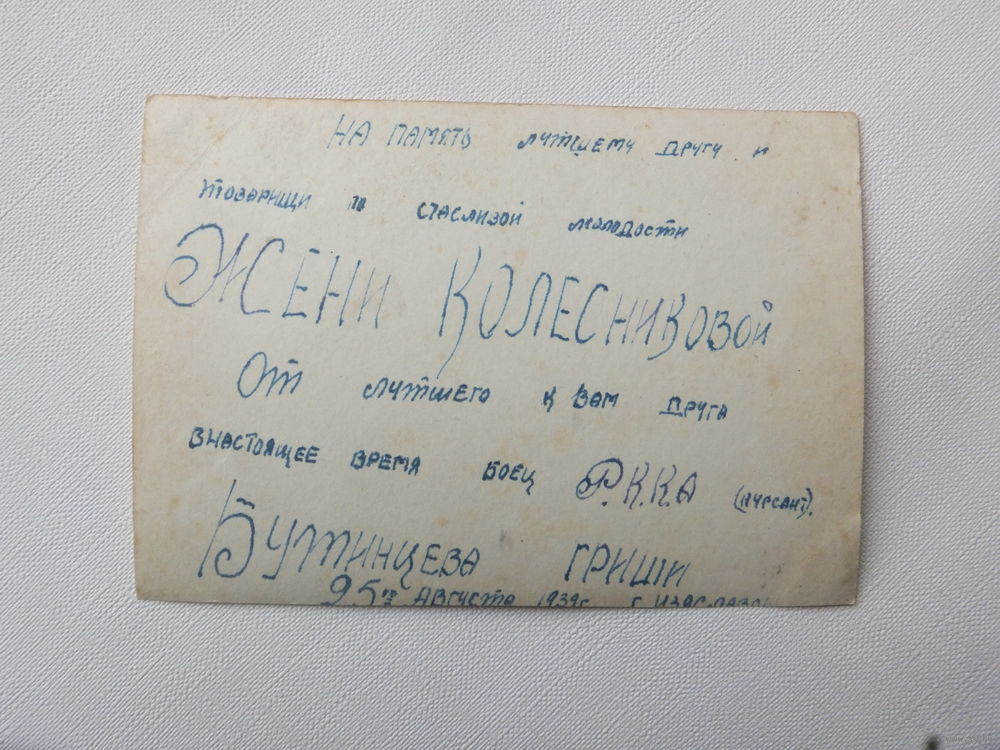 НА ПАМЯТЬ лутшему другу и
товарищи по стасливой молодости
Жени Колесниковой
От лутшего к вам друга
внастоящее время боец Р.К.К.А (курсант).
Бутинцева Гриши
25го Августа 1939г г. Изяславль